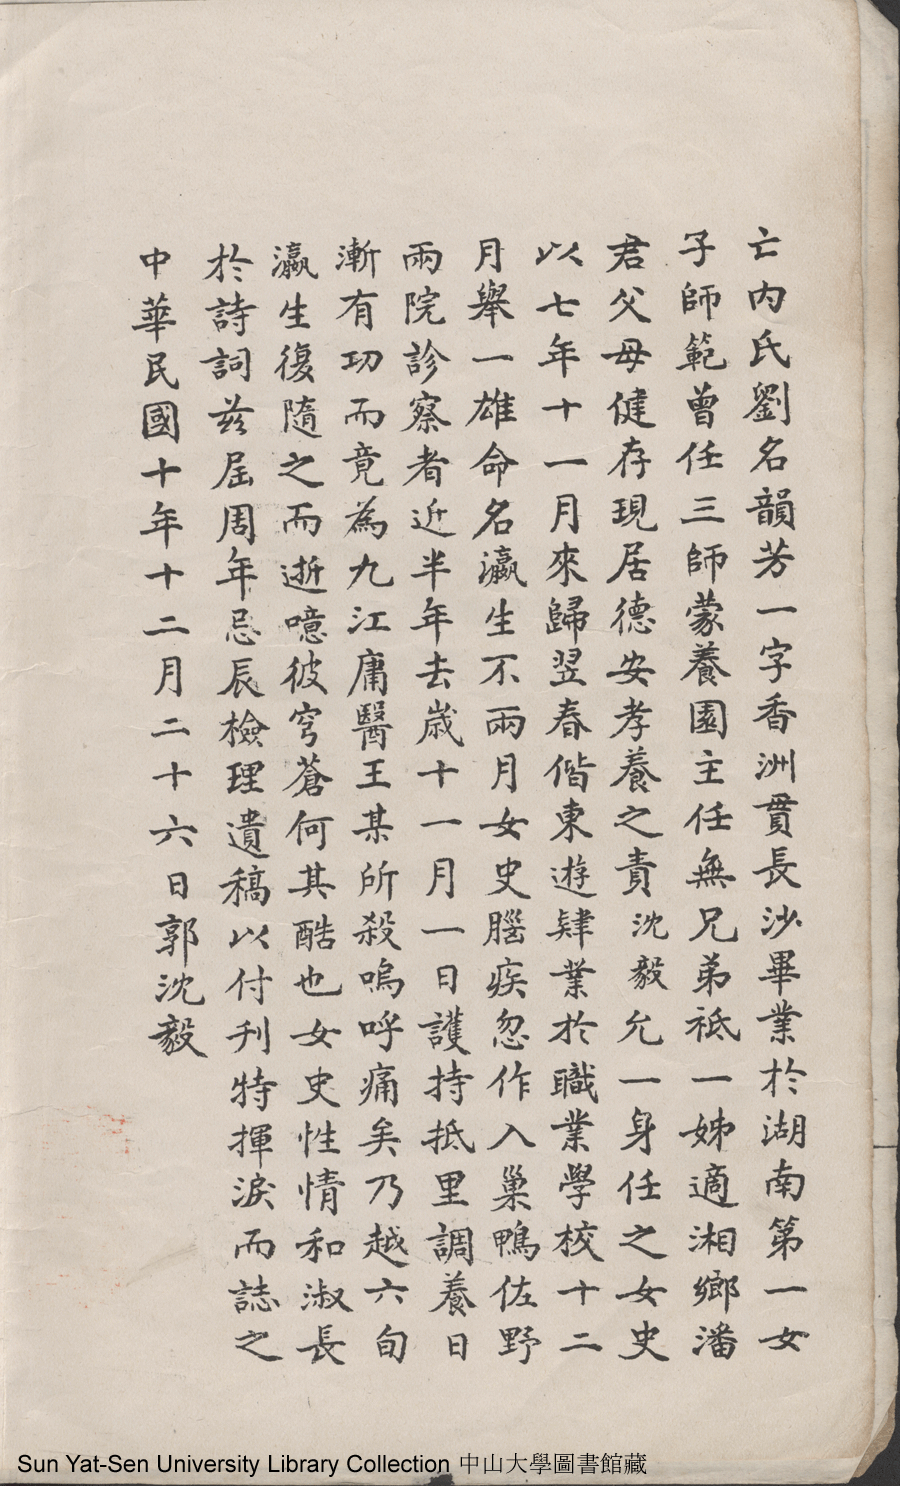 亡内氏劉名韻芳一字香洲貫長沙畢業於湖南第一女
子師範曾任三師蒙養園主任無兄弟祗一姊適湘鄉潘
君父母健存現居德安孝養之責沈毅允一身任之女史
以七年十一月來歸翌春偕東遊肄業於職業學校十二
月舉一雄命名瀛生不兩月女史腦疾忽作入巢鴨佐野
兩院診察者近半年去歲十一月一日護持抵里調養日
漸有功而竟為九江庸醫王某所殺嗚呼痛矣乃越六旬
瀛生復隨之而逝噫彼穹蒼何其酷也女史性情和淑長
於詩詞茲屆周年忌辰檢理遺稿以付刊特揮淚而誌之
中華民國十年十二月二十六日郭沈毅
Sun Yat-Sen University Library Collection 中山大學圖書館藏